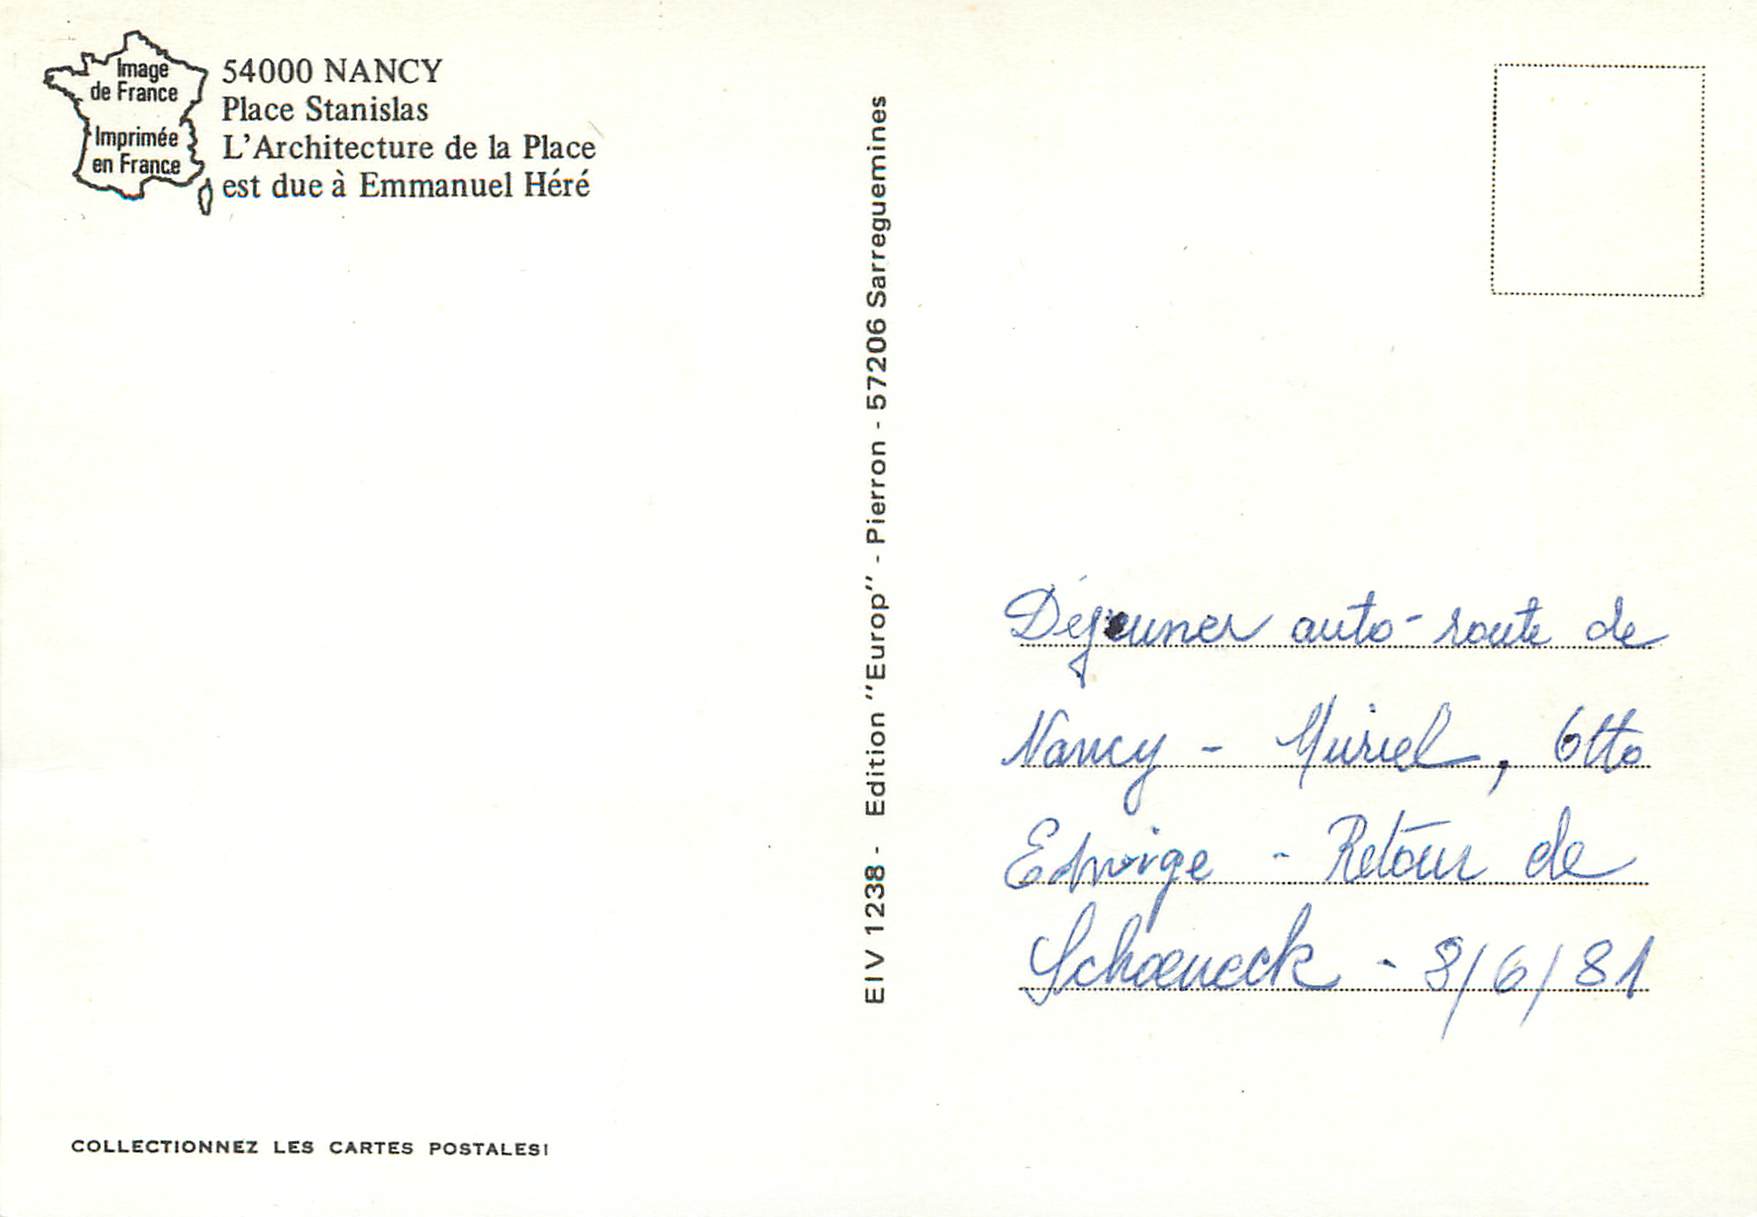 Image
de France
Imprimée
en France
54000 NANCY
Place Stanislas
L'Architecture de la Place
est due à Emmanuel Héré
EIV 1238 - Edition "Europ" - Pierron - 57206 Sarreguemines
Déjeuner auto-route de
Nancy - Muriel, Otto
Edwige - Retour de
Schoeneck - 8/6/81
COLLECTIONNEZ LES CARTES POSTALES!